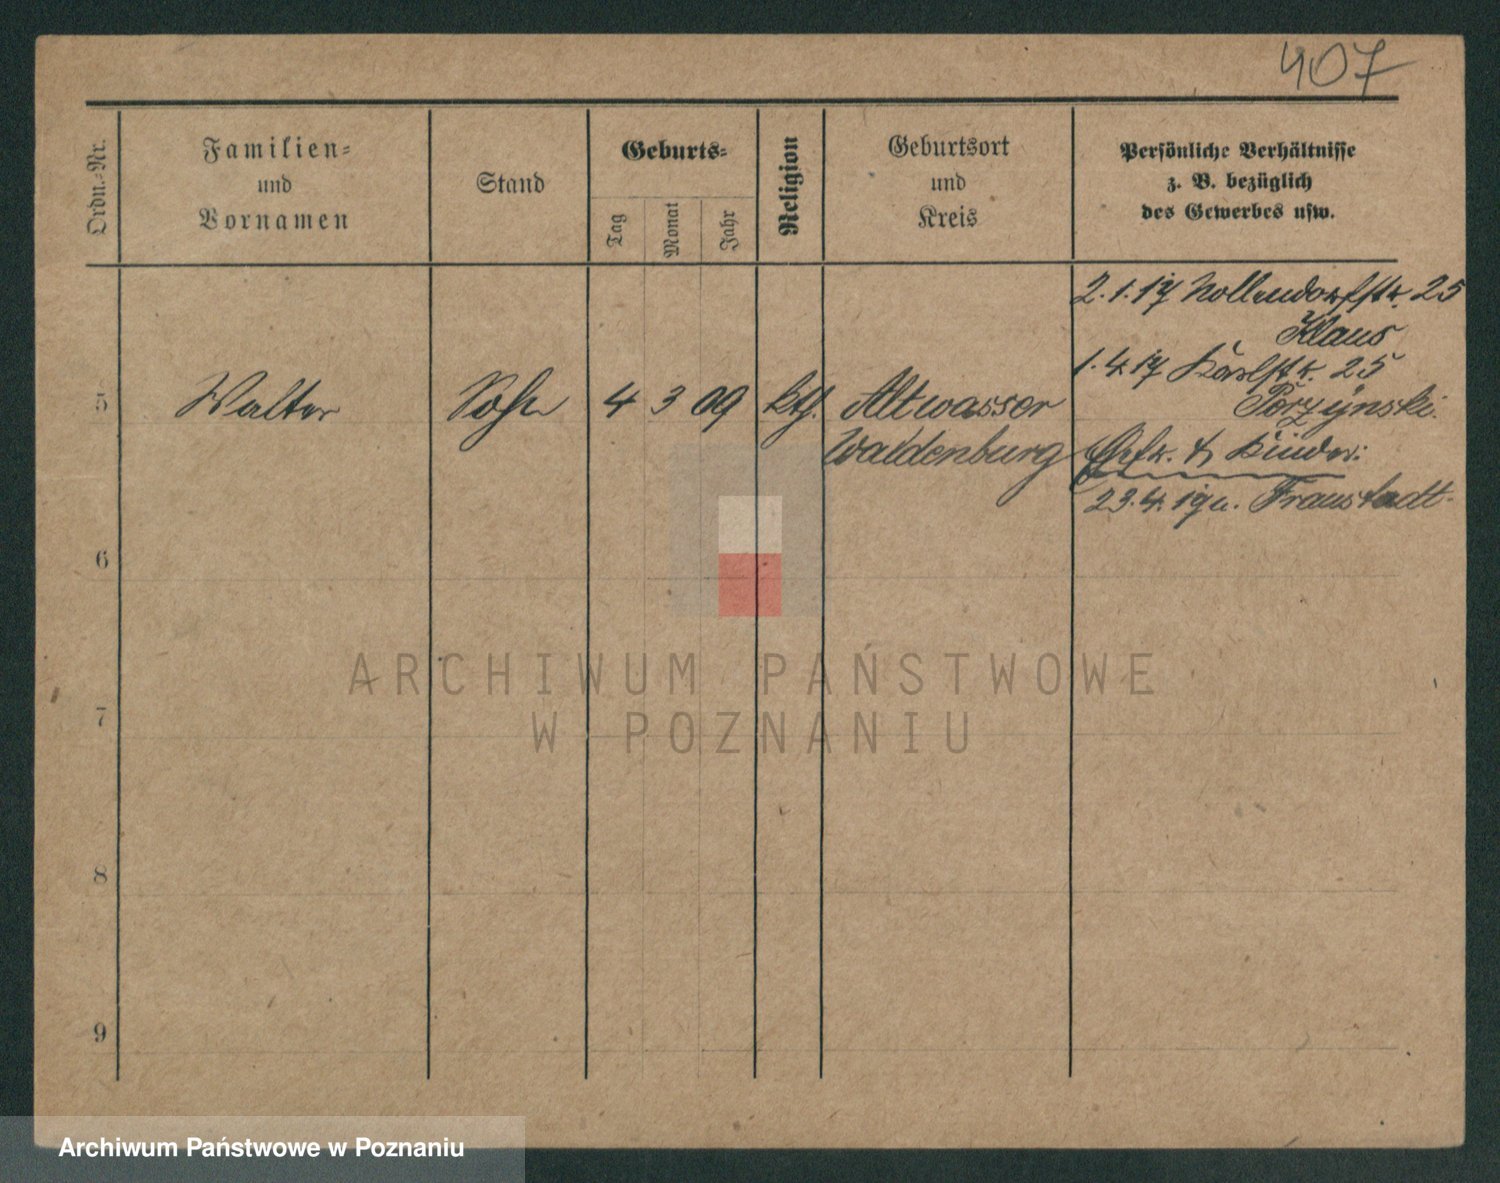 407
Ordn.-Nr.
Familien-
und
Vornamen
Stand
Geburts-
Tag
Monat
Jahr
Religion
Geburtsort
und
Kreis
Persönliche Verhältnisse
z. B. bezüglich
des Gewerbes usw.
2.1.17 Nollendorfstr. 25
Klaus
1.4.17 Karlstr. 25
Porzÿnski.
5 Walter Sohn 4 3 09 kth. Altwasser
Waldenburg
Ehefr. & Kinder:
23.4.19 n. Fraustadt.
6
7
8
9
ARCHIWUM PAŃSTWOWE
W POZNANIU
Archiwum Państwowe w Poznaniu